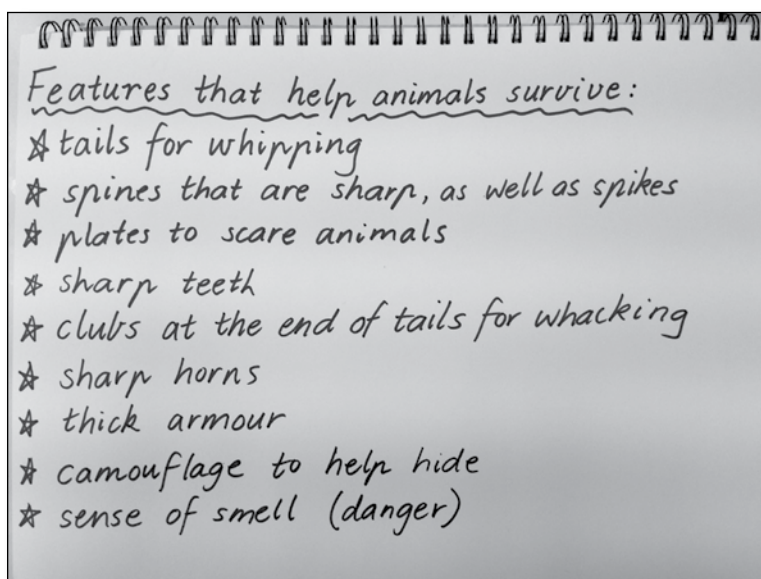 Features that help animals survive:
☆ tails for whipping
☆ spines that are sharp, as well as spikes
☆ plates to scare animals
☆ sharp teeth
☆ clubs at the end of tails for whacking
☆ sharp horns
☆ thick armour
☆ camouflage to help hide
☆ sense of smell (danger)